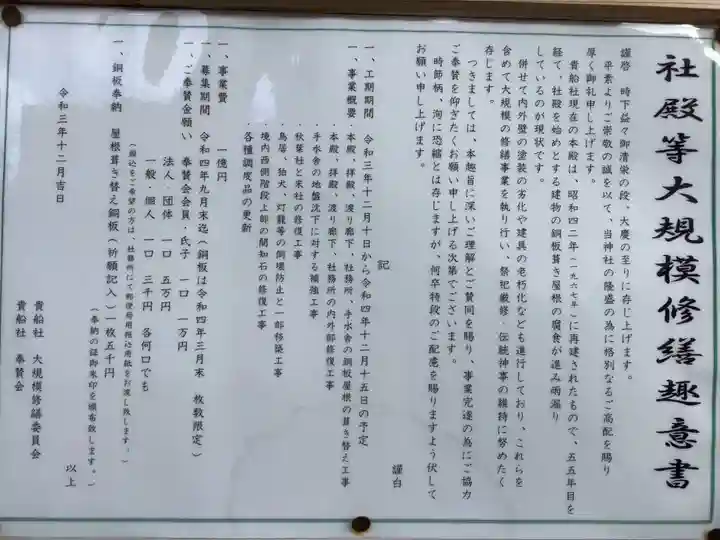 社殿等大規模修繕趣意書
謹啓 時下益々御清栄の段、大慶の至りに存じ上げます。
平素よりご崇敬の誠を以て、当神社の隆盛の為に格別なるご高配を賜り
厚く御礼申し上げます。
貴船社現在の本殿は、昭和四二年(一九六七年)に再建されたもので、五五年目を
経て、社殿を始めとする建物の銅板葺き屋根の腐食が進み雨漏り
しているのが現状です。
併せて内外壁の塗装の劣化や建具の老朽化なども進行しており、これらを
含めて大規模の修繕事業を執り行い、祭祀厳修・伝統神事の維持に努めたく
存じます。
つきましては、本趣旨に深いご理解とご賛同を賜り、事業完遂の為にご協力
ご奉賛を仰ぎたくお願い申し上げる次第でございます。
時節柄、洵に恐縮とは存じますが、何卒特段のご配慮を賜りますよう伏して
お願い申し上げます。
謹白
記
一、工期期間 令和三年十二月十日から令和四年十二月十五日の予定
一、事業概要・本殿、拝殿、渡り廊下、社務所、手水舎の銅板屋根の葺き替え工事
・本殿、拝殿、渡り廊下、社務所の内外部修復工事
・手水舎の地盤沈下に対する補強工事
・秋葉社と末社の修復工事
・鳥居、狛犬、灯籠等の倒壊防止と一部移築工事
・境内西側階段上部の間知石の修復工事
・各種調度品の更新
一、事業費 一億円
一、募集期間 令和四年九月末迄(銅板は令和四年三月末 枚数限定)
一、ご奉賛金願い 奉賛会会員・氏子 一口 一万円
法人・団体 一口 五万円
一般・個人 一口 三千円 各何口でも
(振込をご希望の方は、社務所にて郵便局用振込用紙をお渡し致します。)
一、銅板奉納 屋根葺き替え銅板(祈願記入)一枚五千円
(奉納の証御朱印を頒布致します。)
以上
令和三年十二月吉日
貴船社 大規模修繕委員会
貴船社 奉賛会